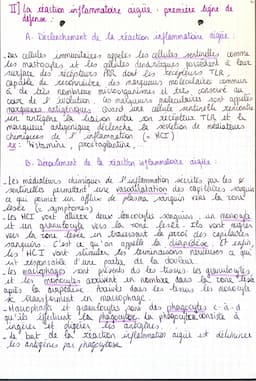 II] La réaction inflammatoire aiguë : première ligne de
défense :
A. Déclenchement de la réaction inflammatoire aiguë :
. Des cellules immunitaires appelées les cellules sentinelles comme
les mastocytes et les cellules dendritiques possèdent à leur
surface des récepteurs PRR dont les récepteurs TLR
capable de reconnaître des marqueurs moléculaires communs
à de très nombreux microorganismes et très conservé au
cours de l'évolution. Ces molécules sont appelés
marqueurs antigéniques. Quand une cellule sentinelle rencontre
un antigène la liaison entre son récepteur TLR et le
marqueur antigénique déclenche la sécrétion de médiateurs
chimiques de l'inflammation (= HCI)
ex : histamine, prostaglandine...
B. Déroulement de la réaction inflammatoire aiguë :
. Les médiateurs chimiques de l'inflammation sécrétés par les
sentinelles permettent une vasodilatation des capillaires sanguins
ce qui permet un afflux de plasma sanguin vers la zone
lésée (= symptômes)
. Les HCI vont attirer deux leucocytes sanguins, un monocyte
et un granulocyte vers la zone lésée. Ils vont migrer
vers la zone lésée en traversant la paroi des capillaires
sanguins. C'est ce qu'on appelle la diapédèse. Et enfin,
les HCI vont stimuler les terminaisons nerveuses ce qui
est responsable d'une partie de la douleur.
. Les macrophages sont présents ds les tissus, les granulocytes
et les monocytes arrivent en nombre dans la zone lésée
après la diapédèse. Arrivés dans les tissus les monocytes
se transforment en macrophage.
. Macrophages et granulocytes sont des phagocytes c-à-d
qu'ils effectuent la phagocytose. La phagocytose consiste à
ingérer et digérer les antigènes.
. Le but de la réaction inflammatoire aiguë est d'éliminer
les antigènes par phagocytose !